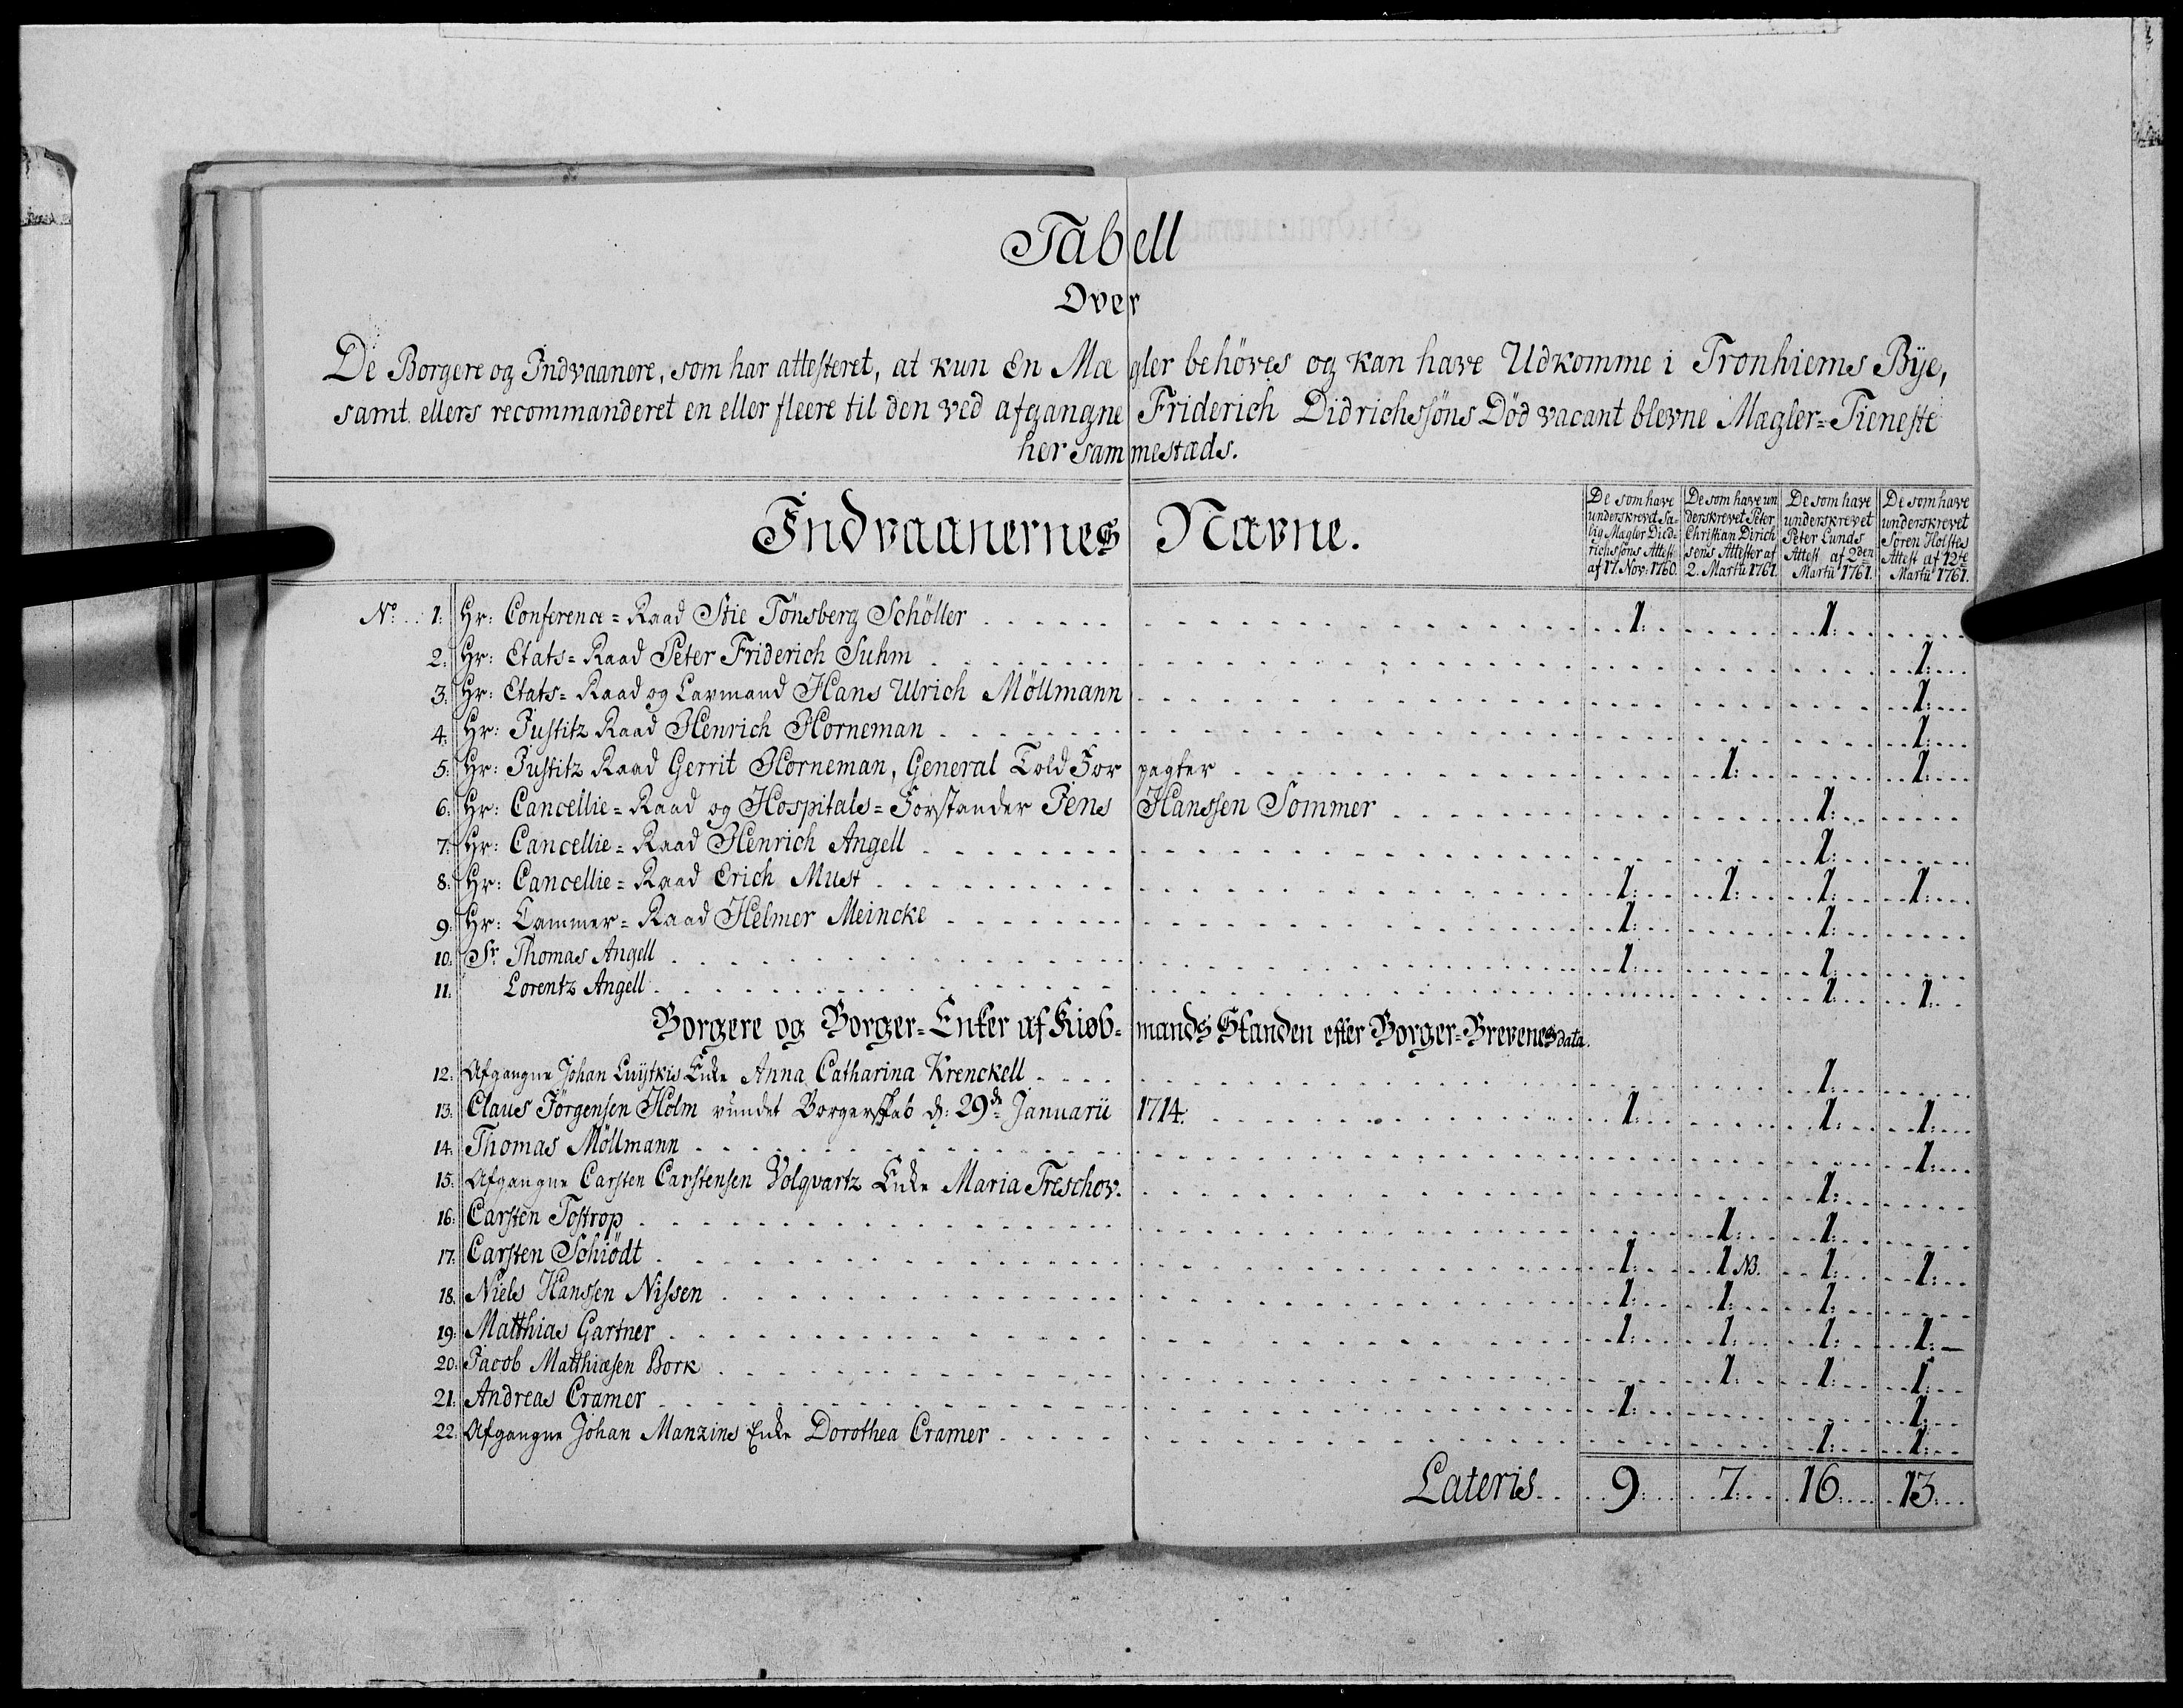 Tabell
Over
De Borgere og Indvaanere, som har attesteret, at kun En Mægler behöves og kan have Udkomme i Tronhiems Bÿe,
samt ellers recommanderet en eller fleere til den ved afgangne Friderich Didrichssöns Död vacant blevne Mægler=Tieneste
her sammestæds.
Indvaanernes Navne.
De som have underskrevet Sa=lig Magler Died=richssöns Attest af 17. Nov: 1760.
De som have underskrevet Peter Christian Dirichsens Attester af 2. Martii 1761.
De som have underskrevet Peter Lunds Attest af 2den Martii 1761.
De som have underskrevet Sören Holstes Attest af 12te Martii 1761.
No. 1: Hr: Conference=Raad Stie Tönsberg Schöller 1: 1:
2: Hr: Etats=Raad Peter Friderich Suhm 1:
3: Hr: Etats=Raad og Lavmand Hans Ulrich Möllmann 1:
4: Hr: Justitz Raad Henrich Horneman 1:
5: Hr: Justitz Raad Gerrit Horneman, General Told Forpagter 1: 1:
6: Hr: Cancellie=Raad og Hospitals=Forstander Jens Hanssen Sommer 1:
7: Hr: Cancellie=Raad Henrich Angell 1:
8: Hr: Cancellie=Raad Erich Must 1: 1: 1: 1:
9: Hr: Cammer=Raad Helmer Meincke 1: 1:
10: Sr. Thomas Angell 1: 1:
11: Lorentz Angell 1: 1:
Borgere og Borger=Enker af Kiøbmands Standen efter Borger=Brevenes data.
12: Afgangne Johan Luijtkis Enke Anna Catharina Krenckell 1:
13: Claus Jörgensen Holm vundet Borgerskab d: 29de Januarii 1714: 1: 1: 1:
14: Thomas Möllmann 1:
15: Afgangne Carsten Carstensen Volqvartz Enke Maria Treschov. 1:
16: Carsten Tostrop 1: 1:
17: Carsten Schiödt 1: 1 NB. 1: 1:
18: Niels Hanssen Nissen 1: 1: 1:
19: Matthias Gartner 1: 1: 1: 1:
20: Jacob Matthiesen Bork 1: 1: 1:
21: Andreas Cramer 1: 1:
22: Afgangne Johan Manzins Enke Dorothea Cramer 1: 1:
Lateris 9: 7: 16 13